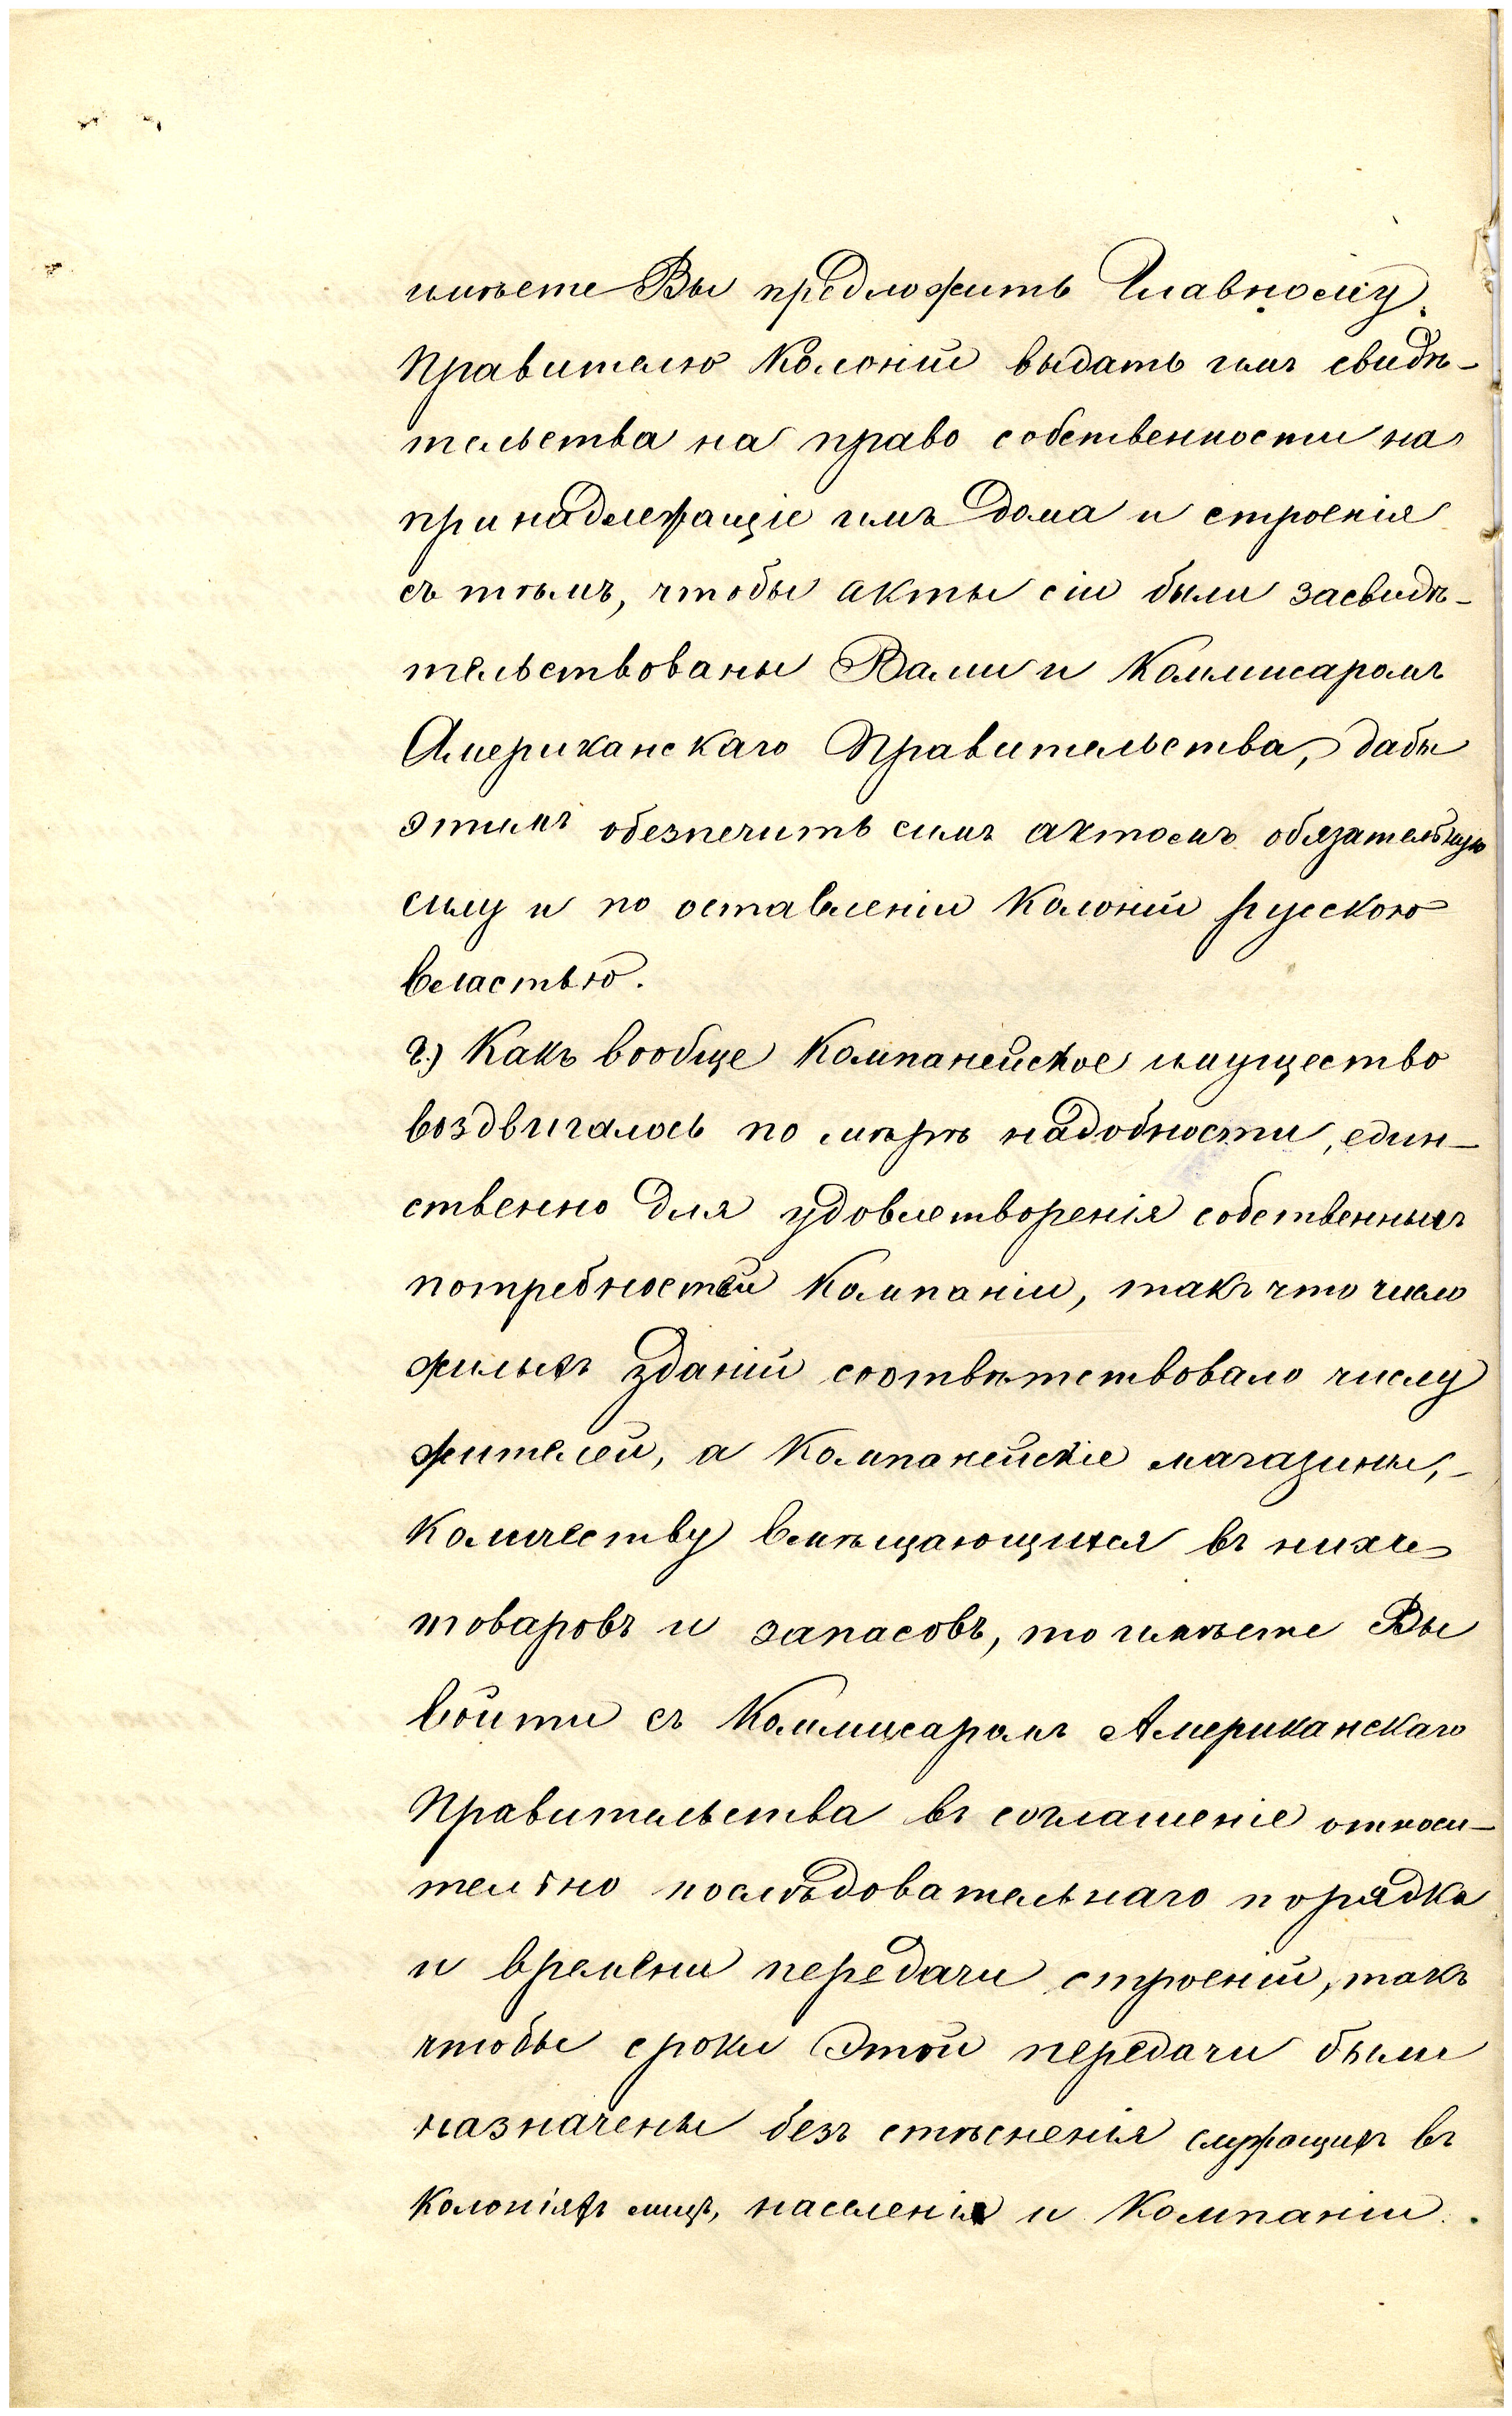 имѣете Вы предложить Главному
Правителю Колоній выдать имъ свидѣ-
тельства на право собственности на
принадлежащіе имъ дома и строенія
съ тѣмъ, чтобы акты сіи были засвидѣ-
тельствованы Вами и Коммисаромъ
Американскаго Правительства, дабы
этимъ обезпечить симъ актамъ обязательную
силу и по оставленіи Колоній русскою
властью.
2.) Какъ вообще Компанейское имущество
воздвигалось по мѣрѣ надобности, един-
ственно для удовлетворенія собственныхъ
потребностей Компаніи, такъ что число
жилыхъ зданій соотвѣтствовало числу
жителей, а Компанейскіе магазины,-
количеству вмѣщающихся въ нихъ
товаровъ и запасовъ, то имѣете Вы
войти съ Коммисаромъ Американскаго
Правительства въ соглашеніе относи-
тельно послѣдовательнаго порядка
и времени передачи строеній, такъ
чтобы сроки этой передачи были
назначены безъ стѣсненія служащихъ въ
Колоніяхъ лицъ, населенія и Компаніи.